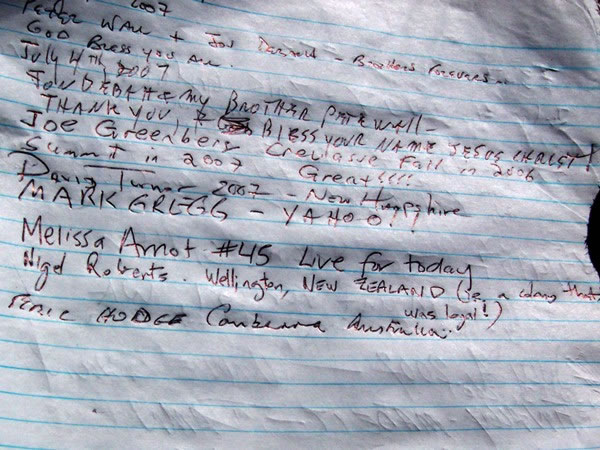 2007
Peter Wall + Jon - Brothers Forever
God Bless you all.
July 4th, 2007
Jon DeBah & my Brother Pete Wall -
Thank you & Bless your name Jesus Christ!
Joe Greenberg Crevasse Fall in 2006
Summit in 2007 Great!!!!
David Turner 2007 - New Hampshire
MARK GREGG - YAHOO!!
Melissa Arnot #45 Live for today
Nigel Roberts. Wellington, NEW ZEALAND (is a climb that
was legal!)
HODGE Canberra Australia.